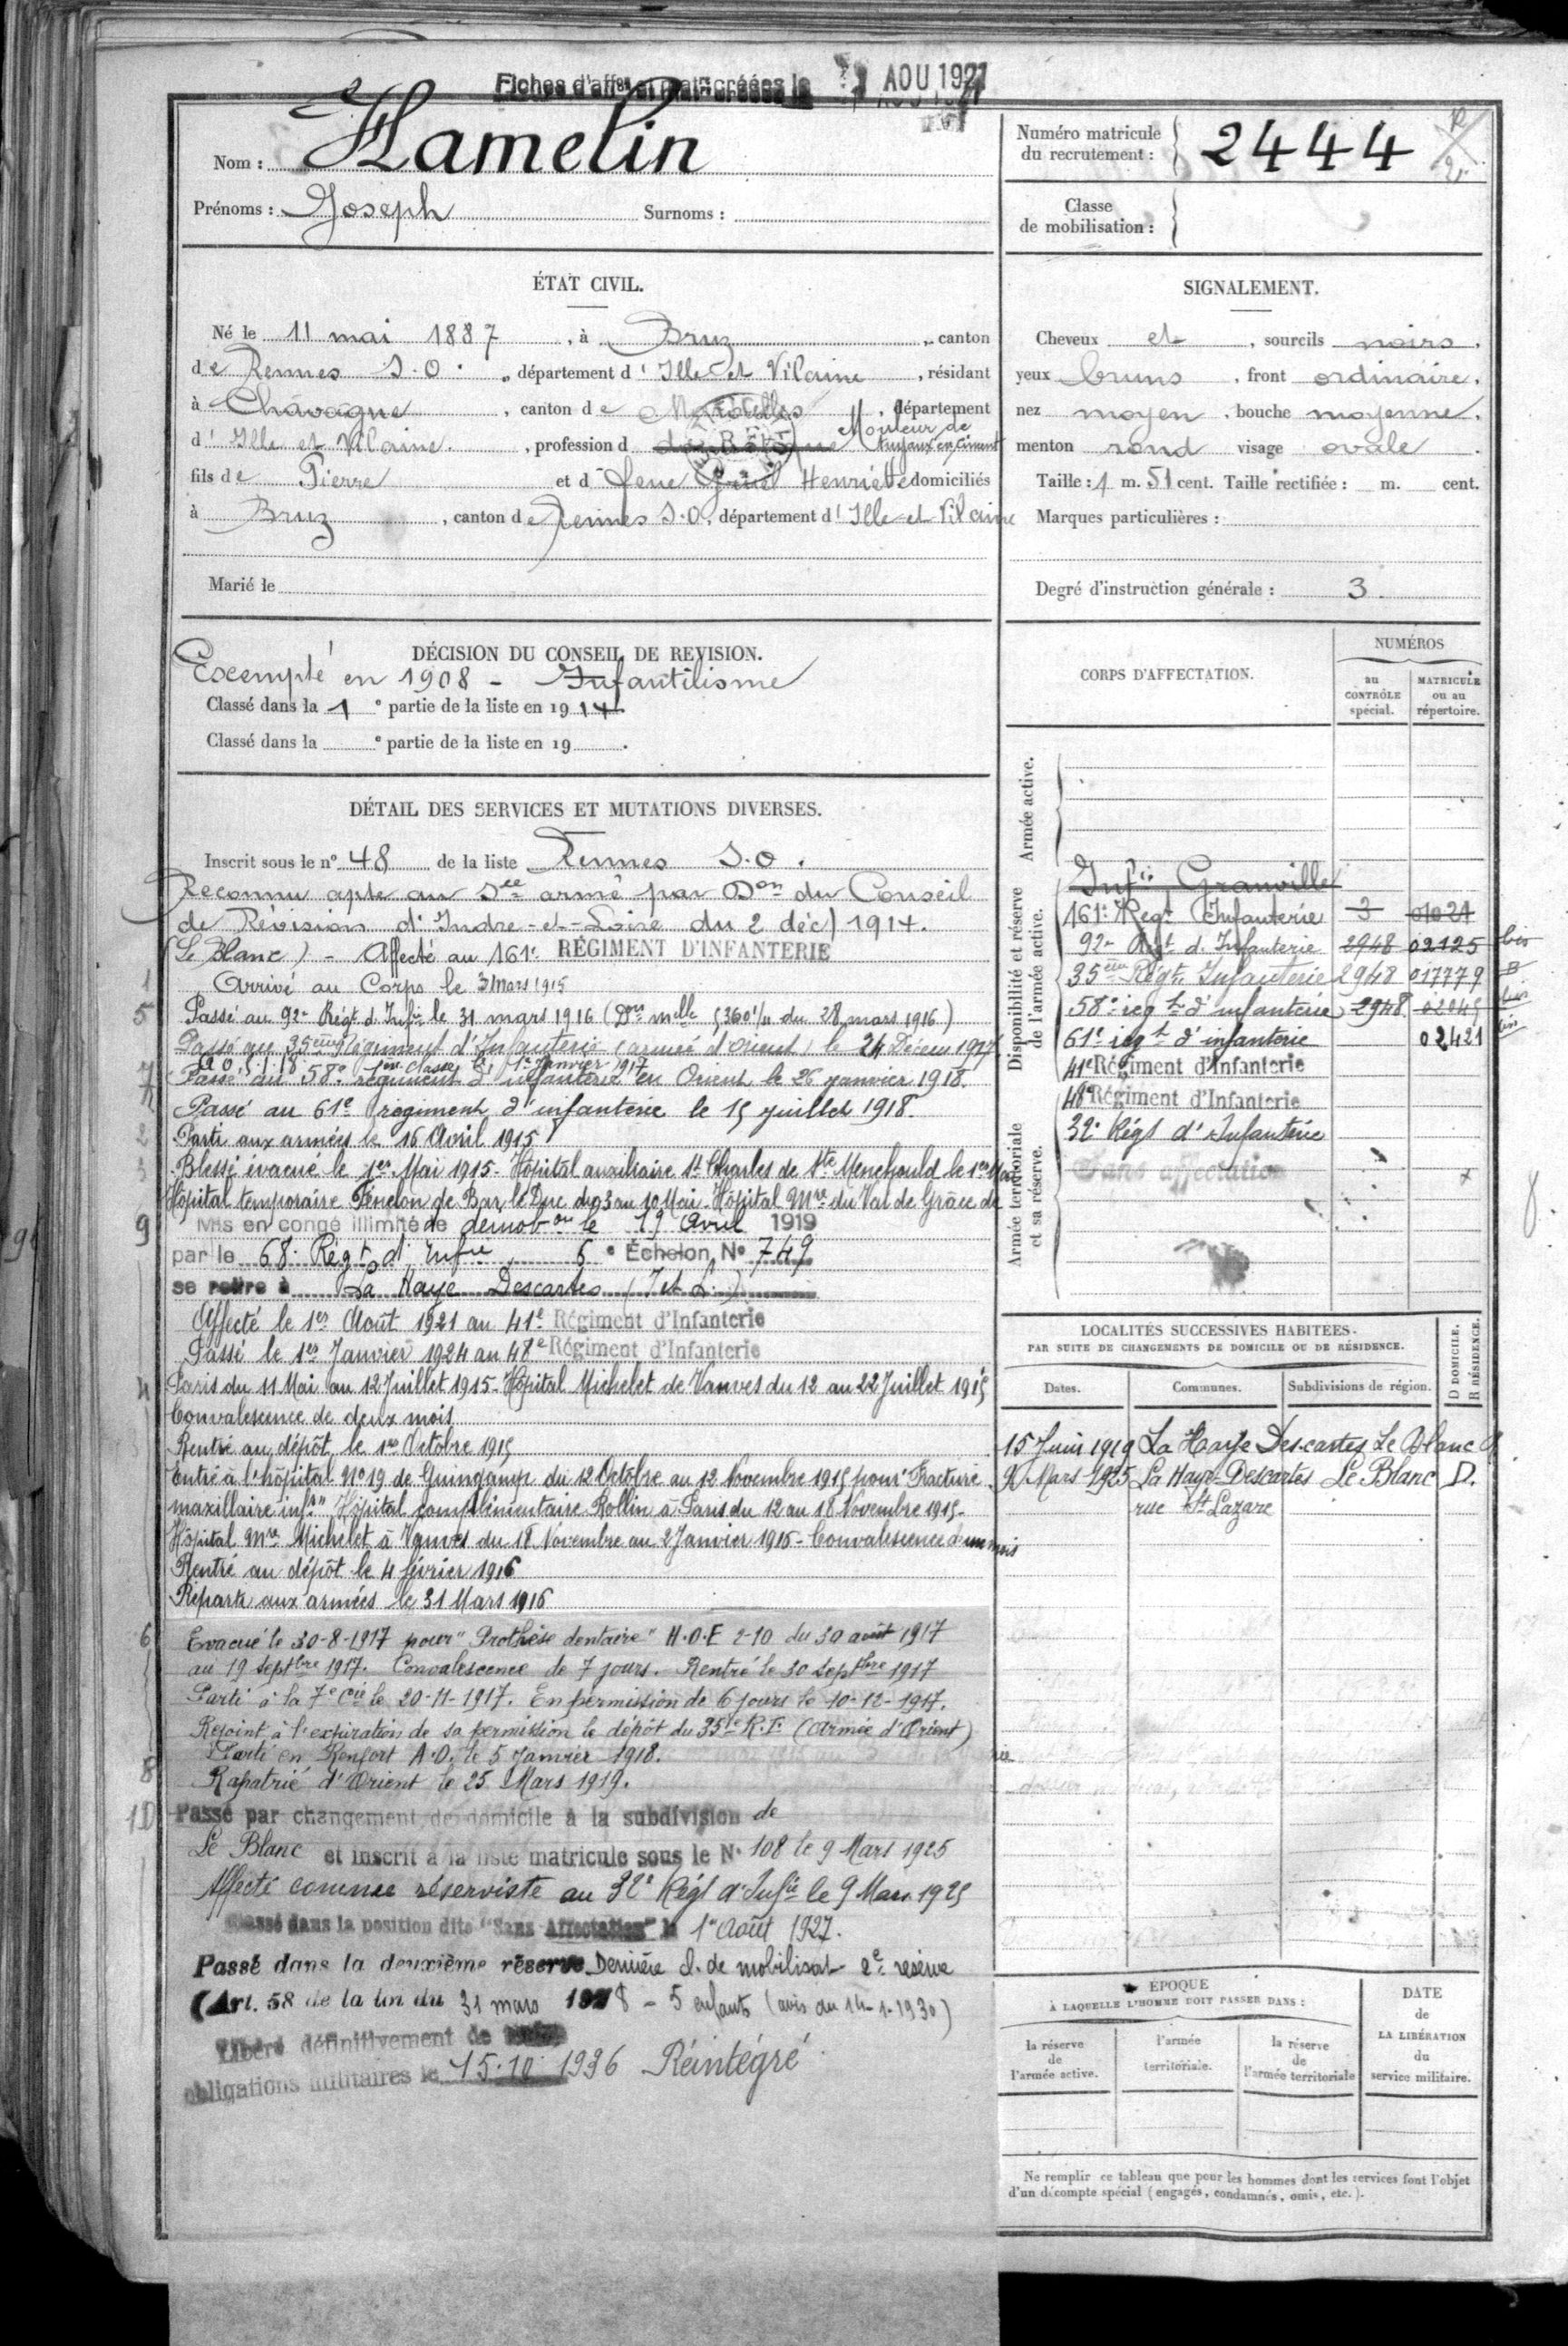 Fiches d'aff^on et mat^le créées le AOU 1927
Nom : Hamelin
Prénoms : Joseph Surnoms :
Numéro matricule
du recrutement : 2444
Classe
de mobilisation :
ÉTAT CIVIL.
Né le 11 mai 1887, à Bruz, canton
de Rennes S.O., département d'Ille et Vilaine, résidant
à Chavagne, canton de Mordelles, département
d'Ille et Vilaine, profession d Mouleur de
tuyaux en ciment
fils de Pierre et d feue Henriette domiciliés
à Bruz, canton de Rennes S.O, département d'Ille et Vilaine
Marié le
SIGNALEMENT.
Cheveux et, sourcils noirs,
yeux bruns, front ordinaire,
nez moyen, bouche moyenne,
menton rond visage ovale.
Taille : 1 m. 51 cent. Taille rectifiée : m. cent.
Marques particulières :
Degré d'instruction générale : 3.
DÉCISION DU CONSEIL DE REVISION.
Exempté en 1908 - Infantilisme
Classé dans la 1e partie de la liste en 1914.
Classé dans la e partie de la liste en 19 .
DÉTAIL DES SERVICES ET MUTATIONS DIVERSES.
Inscrit sous le n° 48 de la liste Rennes S.O.
Reconnu apte au Sce armé par Don du Conseil
de Révision d'Indre-et-Loire du 2 déc 1914.
(Le Blanc) - Affecté au 161e RÉGIMENT D'INFANTERIE
1 Arrivé au Corps le 3 Mars 1915
5 Passé au 92e Régt d'Infie le 31 mars 1916 (Don mlle 5360 1/11 du 28 mars 1916)
Passé au 35ème Régiment d'Infanterie (armée d'orient) le 24 Décem 1917
A O. 5.1.18 1ère classe le 1er Janvier 1917
7 Passé au 58e régiment d'infanterie en Orient le 26 janvier 1918.
Passé au 61e régiment d'infanterie le 15 juillet 1918.
2 Parti aux armées le 16 Avril 1915
3 Blessé évacué le 1er Mai 1915 - Hôpital auxiliaire St Charles de Ste Menehould le 1er Mai
Hôpital temporaire Fénelon de Bar le Duc du 3 au 10 Mai - Hôpital Mre du Val de Grâce de
9 Mis en congé illimité de démobon le 19 Avril 1919
par le 68e Régt d'Infie 6e Échelon, No 749
se retire à La Haye Descartes (I et L)
Affecté le 1er Août 1921 au 41e Régiment d'Infanterie
Passé le 1er Janvier 1924 au 48e Régiment d'Infanterie
4 Paris du 11 Mai au 12 Juillet 1915 - Hôpital Michelet de Vanves du 12 au 22 Juillet 1915
Convalescence de deux mois
Rentré au dépôt le 1er Octobre 1915
Entré à l'hôpital No 19 de Guingamp du 12 Octobre au 12 Novembre 1915 pour "Fracture
maxillaire infr" Hôpital complémentaire Rollin à Paris du 12 au 18 Novembre 1915-
Hôpital Mre Michelet à Vanves du 18 Novembre au 2 Janvier 1916 - Convalescence d'un mois
Rentré au dépôt le 4 février 1916
Reparti aux armées le 31 Mars 1916
6 Evacué le 30-8-1917 pour "Prothèse dentaire" H.O.E 2-10 du 30 août 1917
au 19 Septbre 1917. Convalescence de 7 jours. Rentré le 30 Septbre 1917
Parti à la 7e Cie le 20-11-1917. En permission de 6 jours le 10-12-1917.
Rejoint à l'expiration de sa permission le dépôt du 35e R.I. (Armée d'Orient)
Parti en Renfort A.O. le 5 Janvier 1918.
8 Rapatrié d'Orient le 25 Mars 1919.
10 Passé par changement de domicile à la subdivision de
Le Blanc et inscrit à la liste matricule sous le No 108 le 9 Mars 1925
Affecté comme réserviste au 32e Régt d'Infie le 9 Mars 1925
Classé dans la position dite "Sans Affectation" le 1er Août 1927.
Passé dans la deuxième réserve Dernière cl. de mobilisat- 2e réserve
(Art. 58 de la loi du 31 mars 1928 - 5 enfants (avis du 14-1-1930)
Libéré définitivement de
obligations militaires le 15.10.1936 Réintégré
CORPS D'AFFECTATION.
NUMÉROS
au
CONTRÔLE
spécial.
MATRICULE
ou au
répertoire.
Armée active.
Disponibilité et réserve
de l'armée active.
Infie Granville
161e Régt Infanterie 3 01021
92e Régt d'Infanterie 2948 02125 bis
35ème Régt Infanterie 2948 017779 B
58e régt d'infanterie 2948 02045 bis
61e régt d'infanterie 02421 bis
41e Régiment d'Infanterie
48e Régiment d'Infanterie
32e Régt d'Infanterie
Sans affectation
Armée territoriale
et sa réserve.
LOCALITÉS SUCCESSIVES HABITÉES
PAR SUITE DE CHANGEMENTS DE DOMICILE OU DE RÉSIDENCE.
Dates. Communes. Subdivisions de région. D DOMICILE. R RÉSIDENCE.
15 Juin 1919 La Haye Descartes Le Blanc
9 Mars 1925 La Haye-Descartes Le Blanc D.
rue St Lazare
ÉPOQUE
À LAQUELLE L'HOMME DOIT PASSER DANS :
la réserve
de
l'armée active.
l'armée
territoriale.
la réserve
de
l'armée territoriale
DATE
de
LA LIBÉRATION
du
service militaire.
Ne remplir ce tableau que pour les hommes dont les services font l'objet
d'un décompte spécial (engagés, condamnés, omis, etc.).